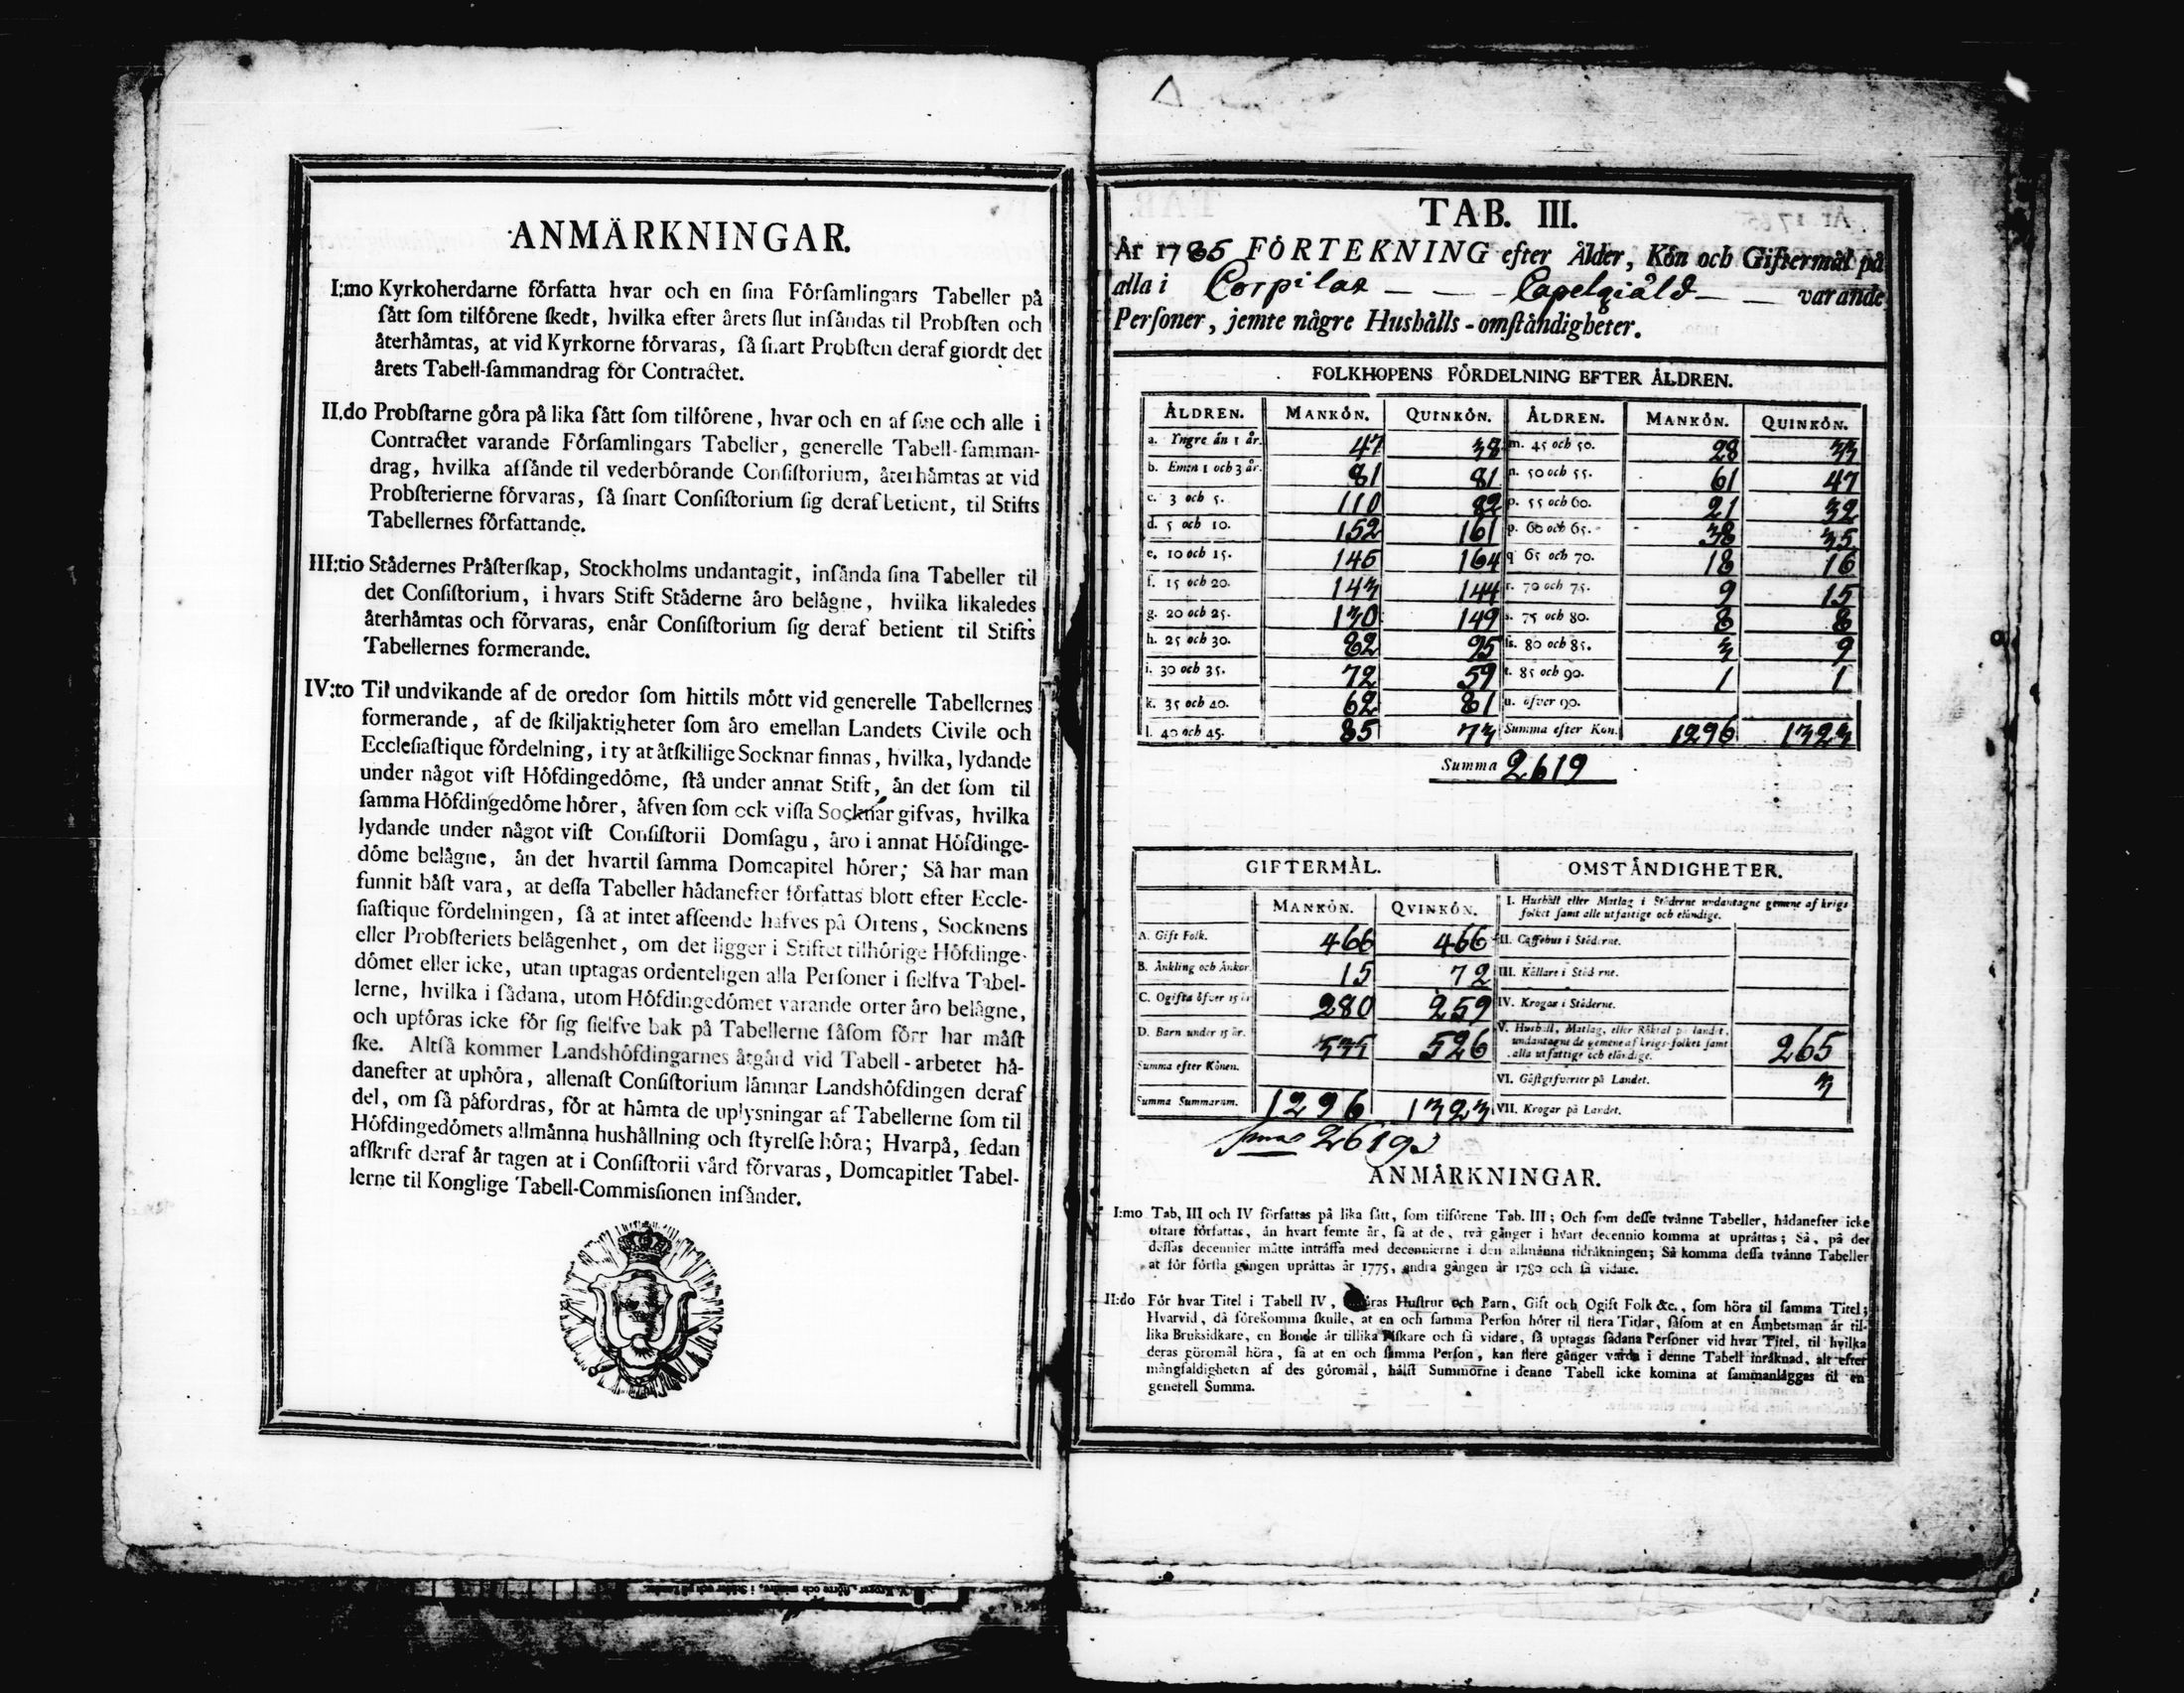 ANMÄRKNINGAR.
I:mo Kyrkoherdarne författa hvar och en ſina Förſamlingars Tabeller på
ſått ſom tilförene ſkedt, hvilka efter årets ſlut inſåndas til Probſten och
återhåmtas, at vid Kyrkorne förvaras, ſå ſnart Probſten deraf giordt det
årets Tabell-ſammandrag för Contractet.
II.do Probſtarne göra på lika ſått ſom tilförene, hvar och en af ſine och alle i
Contractet varande Förſamlingars Tabeller, generelle Tabell-ſamman-
drag, hvilka afſånde til vederbörande Conſiſtorium, återhåmtas at vid
Probſterierne förvaras, ſå ſnart Conſiſtorium ſig deraf betient, til Stifts
Tabellernes författande.
III:tio Stådernes Pråſterſkap, Stockholms undantagit, inſånda ſina Tabeller til
det Conſiſtorium, i hvars Stift Ståderne åro belågne, hvilka likaledes
återhåmtas och förvaras, enår Conſiſtorium ſig deraf betient til Stifts
Tabellernes formerande.
IV:to Til undvikande af de oredor ſom hittils mött vid generelle Tabellernes
formerande, af de ſkiljaktigheter ſom åro emellan Landets Civile och
Eccleſiaſtique fördelning, i ty at åtſkillige Socknar finnas, hvilka, lydande
under något viſt Höfdingedöme, ſtå under annat Stift, ån det ſom til
ſamma Höfdingedöme hörer, åfven ſom ock viſſa Socknar gifvas, hvilka
lydande under något viſt Conſiſtorii Domſagu, åro i annat Höfdinge-
döme belågne, ån det hvartil ſamma Domcapitel hörer; Så har man
funnit båſt vara, at deſſa Tabeller hådanefter författas blott efter Eccle-
ſiaſtique fördelningen, ſå at intet afſeende hafves på Ortens, Socknens
eller Probſteriets belågenhet, om det ligger i Stiftet tilhörige Höfdinge-
dömet eller icke, utan uptagas ordenteligen alla Perſoner i ſielfva Tabel-
lerne, hvilka i ſådana, utom Höfdingedömet varande orter åro belågne,
och upföras icke för ſig ſielfve bak på Tabellerne ſåſom förr har måſt
ſke. Altſå kommer Landshöfdingarnes åtgård vid Tabell-arbetet hå-
danefter at uphöra, allenaſt Conſiſtorium låmnar Landshöfdingen deraf
del, om ſå påfordras, för at håmta de uplysningar af Tabellerne ſom til
Höfdingedömets allmånna hushållning och ſtyrelſe höra; Hvarpå, ſedan
afſkrift deraf år tagen at i Conſiſtorii vård förvaras, Domcapitlet Tabel-
lerne til Konglige Tabell-Commisſionen inſånder.
TAB. III.
År 1785 FÖRTEKNING efter Ålder, Kön och Giftermål på
alla i Corpilax - - - Capelgiäld - - varande
Perſoner, jemte någre Hushålls-omſtåndigheter.
FOLKHOPENS FÖRDELNING EFTER ÅLDREN.
ÅLDREN. MANKÖN. QUINKÖN. ÅLDREN. MANKÖN. QUINKÖN.
a. Yngre ån 1 år. 47 38 m. 45 och 50. 28 33
b. Emen 1 och 3 år. 81 81 n. 50 och 55. 61 47
c. 3 och 5. 110 82 p. 55 och 60. 21 32
d. 5 och 10. 152 161 p. 60 och 65. 38 35
e. 10 och 15. 145 164 q 65 och 70. 18 16
f. 15 och 20. 143 144 r. 70 och 75. 9 15
g. 20 och 25. 130 149 s. 75 och 80. 8 8
h. 25 och 30. 82 95 ſs. 80 och 85. 3 9
i. 30 och 35. 72 59 t. 85 och 90. 1 1
k. 35 och 40. 62 81 u. öfver 90.
l. 40 och 45. 85 73 Summa efter Kön. 1296 1323
Summa 2619
GIFTERMÅL. OMSTÅNDIGHETER.
MANKÖN. QVINKÖN. I. Hushåll eller Matlag i Ståderne undantagne gemene af krigs
folket ſamt alle utfattige och elåndige.
A. Gift Folk. 466 466 II. Caffehus i Ståderne.
B. Ånkling och Ånkor. 15 72 III. Kållare i Ståderne.
C. Ogifta öfver 15 år 280 259 IV. Krogar i Ståderne.
D. Barn under 15 år. 535 526 V. Hushåll, Matlag, eller Röktal på landet,
undantagne de gemene af krigs-folket ſamt
alla utfattige och elåndige. 265
Summa efter Könen. VI. Gåſtgifverier på Landet. 3
Summa Summarum. 1296 1323 VII. Krogar på Landet.
2619
ANMÅRKNINGAR.
I:mo Tab, III och IV författas på lika ſått, ſom tilförene Tab. III; Och ſom deſſe tvånne Tabeller, hådanefter icke
oftare författas, ån hvart femte år, ſå at de, två gånger i hvart decennio komma at upråttas; Så, på det
deſſas decennier måtte intråffa med decennierne i den allmånna tidråkningen; Så komma deſſa tvånne Tabeller
at för förſta gången upråttas år 1775, andra gången år 1780 och ſå vidare.
II:do För hvar Titel i Tabell IV, Huſtrur och Barn, Gift och Ogift Folk &c., ſom höra til ſamma Titel;
Hvarvid, då förekomma ſkulle, at en och ſamma Perſon hörer til flera Titlar, ſåſom at en Åmbetsman år til-
lika Bruksidkare, en Bonde år tillika Fiſkare och ſå vidare, ſå uptagas ſådana Perſoner vid hvar Titel, til hvilka
deras göromål höra, ſå at en och ſamma Perſon, kan flere gånger varda i denne Tabell inråknad, alt efter
mångfaldigheten af des göromål, hålſt Summorne i denne Tabell icke komma at ſammanlåggas til en
generell Summa.